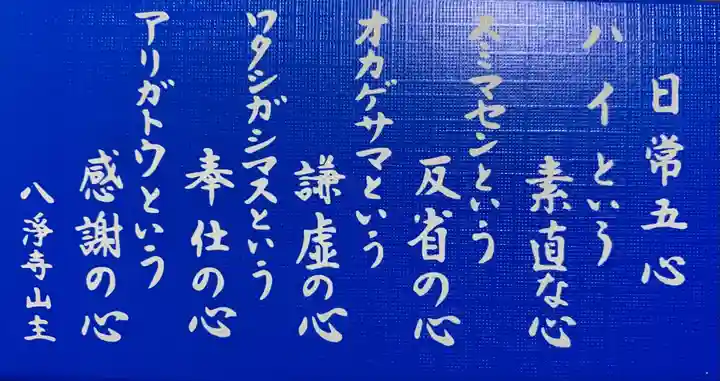 日常五心
ハイという
素直な心
スミマセンという
反省の心
オカゲサマという
謙虚の心
ワタシガシマスという
奉仕の心
アリガトウという
感謝の心
八淨寺山主